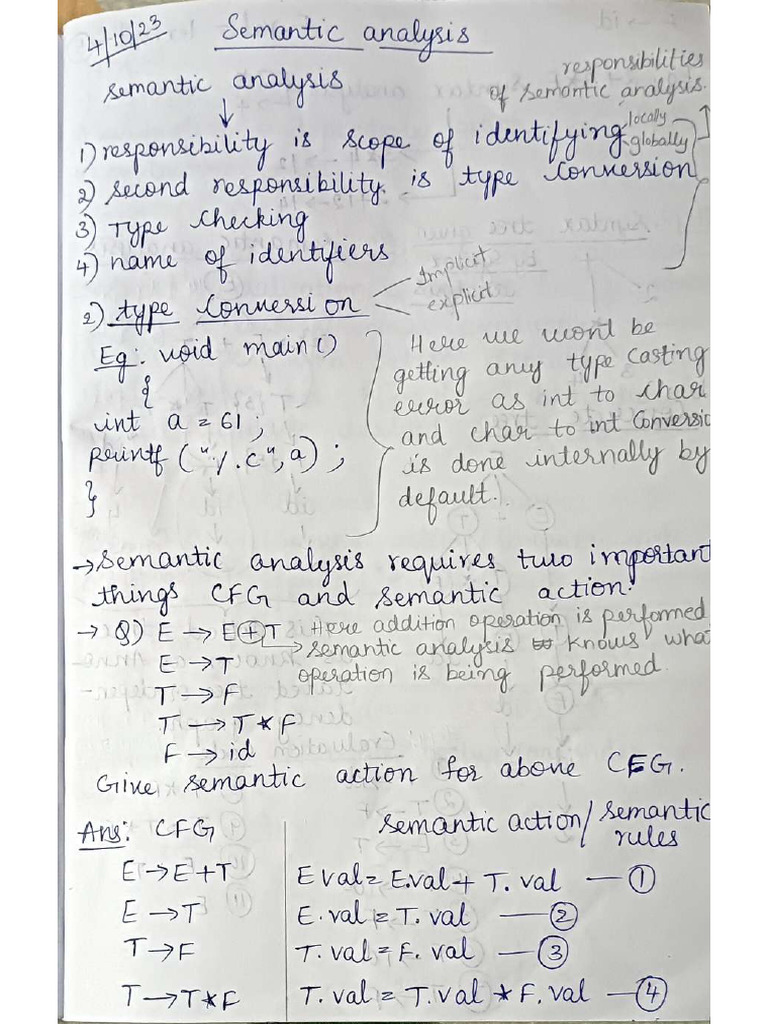 4/10/23 Semantic analysis
semantic analysis
responsibilities
of semantic analysis.
1) responsibility is scope of identifying locally globally
2) second responsibility. is type conversion
3) Type checking
4) name of identifiers
2) type conversion implicit
explicit
Eg: void main()
{
int a = 61;
printf ("%c", a);
}
Here we wont be
getting any type casting
error as int to char
and char to int Conversio
is done internally by
default.
→ semantic analysis requires two important
things CFG and semantic action.
→ Q) E → E + T Here addition operation is performed
→ semantic analysis knows what
E → T operation is being performed.
T → F
T → T * F
F → id
Give semantic action for above CFG.
Ans: CFG semantic action / semantic rules
E → E + T E val = E.val + T. val — ①
E → T E. val = T. val — ②
T → F T. val = F. val — ③
T → T * F T. val = T. val * F. val — ④